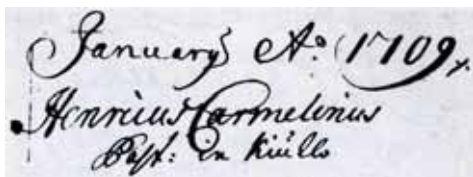 January Aº 1709
Henricus Carmelinius
Past: in Kiullo